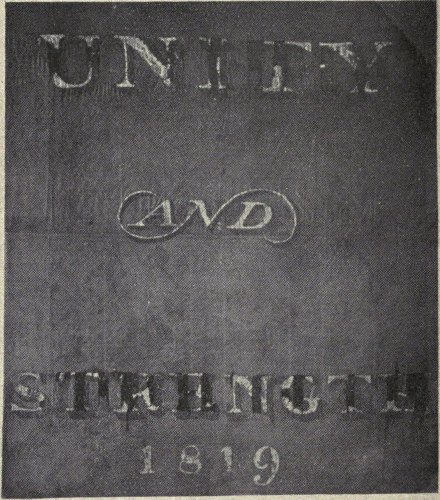 UNITY
AND
STRENGTH
1819